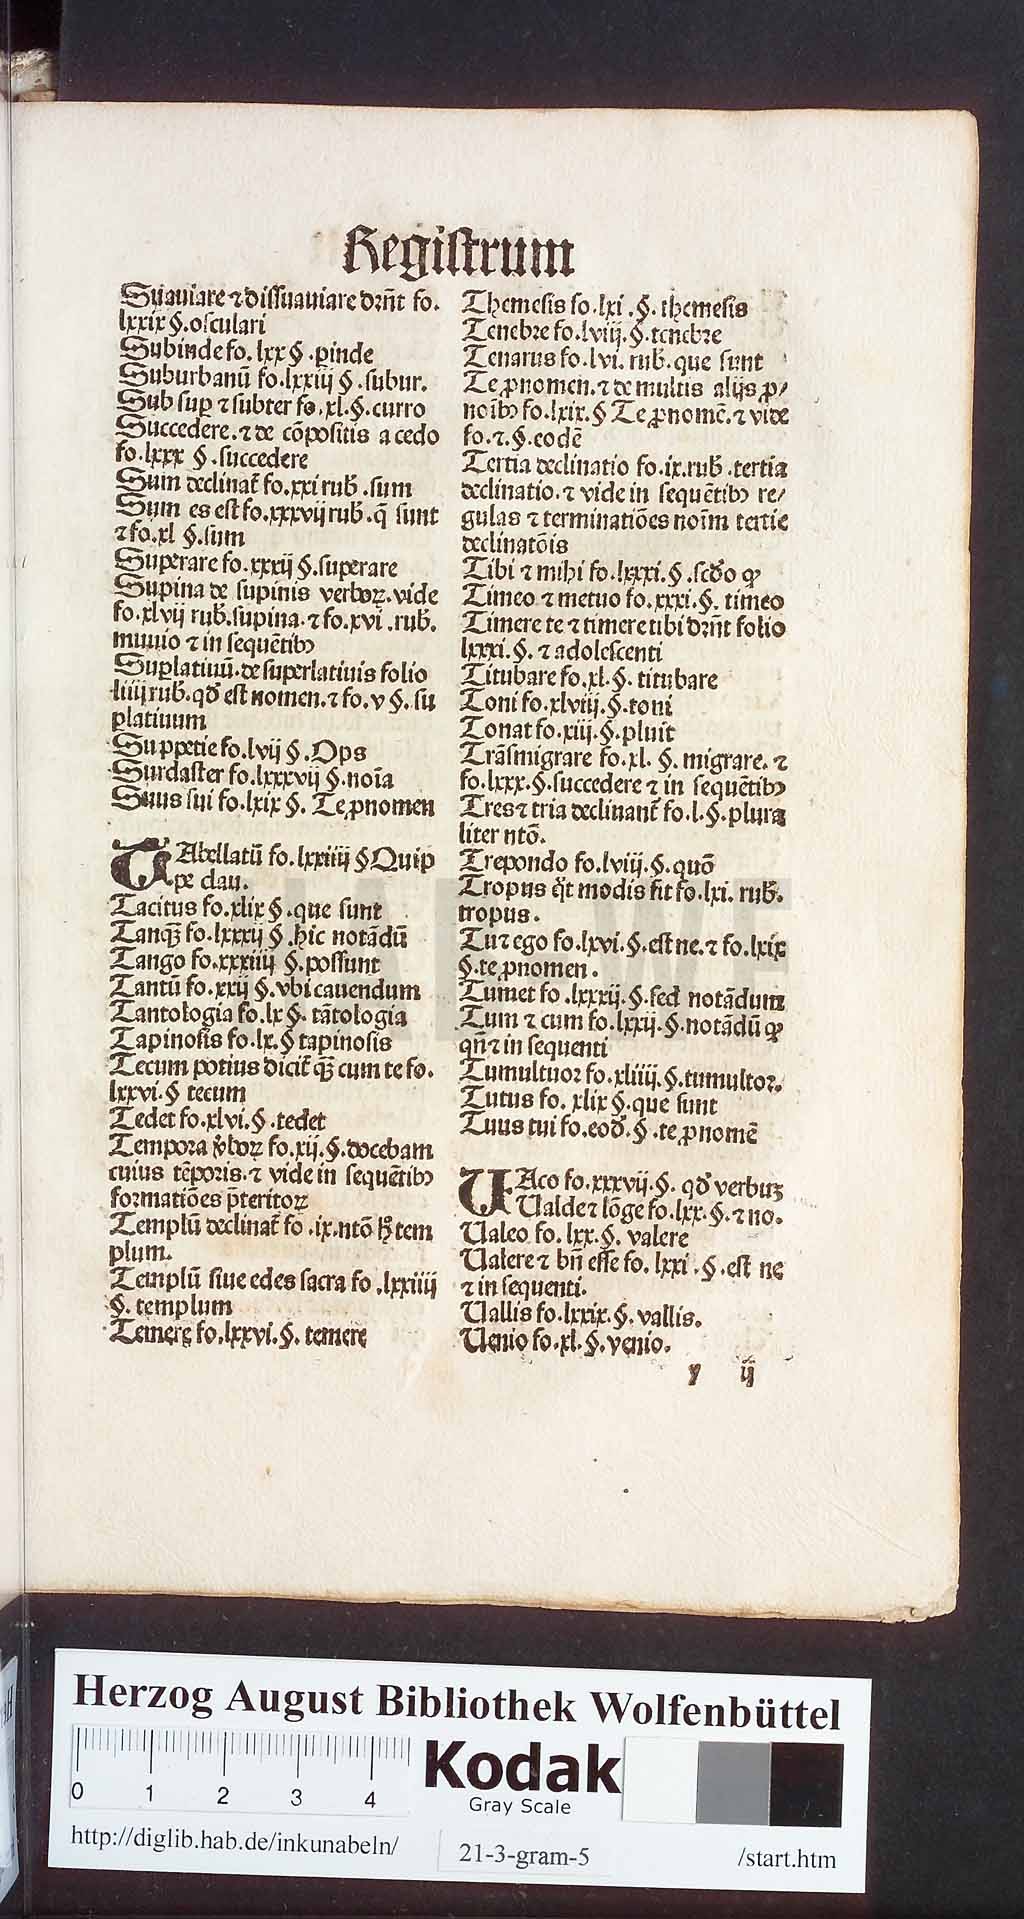 Registrum
Suauiare ⁊ dissuauiare drñt fo.
lxxix §. osculari
Subinde fo. lxx § .ꝑinde
Suburbanū fo.lxxiij § .subur.
Sub suꝑ ⁊ subter fo.xl.§.curro
Succedere.⁊ de cōpositis a cedo
fo.lxxx § .succedere
Sum declinat̄ fo.xxi rub̄ .sum
Sum es est fo.xxxvij rub̄. q̄ sunt
⁊ fo.xl §.sum
Superare fo.xxxij §.superare
Supina de supinis verboꝝ.vide
fo.xlvij rub̄.supina.⁊ fo.xvi .rub̄.
munio ⁊ in sequētibꝰ
Suꝑlatiuū.de superlatiuis folio
iiij rub̄. qđ est nomen.⁊ fo.v §. su
ꝑlatiuum
Suppetie fo.lvij § .Ops
Surdaster fo.lxxxvij §.noīa
Suus sui fo.lxix §. Te ꝓnomen
TAbellatū fo.lxxiiij § Quip
pe clau.
Tacitus fo.xlix § .que sunt
Tanqꝫ fo.lxxxij § .hic notādū
Tango fo.xxxiiij §.possunt
Tantū fo.xxij §.vbi cauendum
Tantologia fo.lx §. tātologia
Tapinosis fo.lx.§ tapinosis
Tecum potius dicit̄ qꝫ cum te fo.
lxxvi.§ tecum
Tedet fo.xlvi.§ .tedet
Tempora v̄boꝝ fo.xij.§.docebam
cuius tēporis.⁊ vide in sequētibꝰ
formatiōes p̄teritoꝝ
Templū declinat̄ fo .ix.ntō hꝫ tem
plum.
Templū siue edes sacra fo .lxxiiij
§. templum
Temere fo.lxxvi.§. temere
Themesis fo.lxi .§. themesis
Tenebre fo.lviij.§.tenebre
Tenarus fo.lvi. rub̄. que sunt
Te ꝓnomen.⁊ de multis alijs ꝓ/
noībꝰ fo.lxix.§ Te ꝓnomē.⁊ vide
fo.⁊.§.eodē
Tertia declinatio fo.ix.rub̄ .tertia
declinatio.⁊ vide in sequētibꝰ re/
gulas ⁊ terminatiōes noīm tertie
declinatōis
Tibi ⁊ mihi fo.lxxxi.§ .scđo ꝙ
Timeo ⁊ metuo fo.xxxi.§. timeo
Timere te ⁊ timere tibi drñt folio
lxxxi.§. ⁊ adolescenti
Titubare fo.xl.§. titubare
Toni fo.xlviij.§.toni
Tonat fo.xiij.§.pluit
Trāsmigrare fo.xl. §. migrare. ⁊
fo.lxxx.§.succedere ⁊ in sequētibꝰ
Tres ⁊ tria declinant̄ fo.l.§.plura
liter ntō.
Trepondo fo.lviij.§.quō
Tropus q̊t modis fit fo.lxi. rub̄.
tropus.
Tu ⁊ ego fo.lxvi.§.est ne.⁊ fo.lxix
§.te ꝓnomen.
Tumet fo .lxxxij.§.sed notādum
Tum ⁊ cum fo.lxxij.§.notādū ꝙ
qñ ⁊ in sequenti
Tumultuor fo.xliiij.§.tumultor.
Tutus fo. xlix §.que sunt
Tuus tui fo.eođ.§ .te ꝓnomē
UAco fo.xxxvij.§. qđ verbuꝫ
Ualde ⁊ lōge fo.lxx.§.⁊ no.
Ualeo fo. lxx.§. valere
Ualere ⁊ bñ esse fo. lxxi .§.est ne
⁊ in sequenti.
Uallis fo.lxxix.§. vallis.
Uenio fo.xl.§.venio.
y ij
HAB WF
Herzog August Bibliothek Wolfenbüttel
0 1 2 3 4
Kodak
Gray Scale
http://diglib.hab.de/inkunabeln/
21-3-gram-5
/start.htm